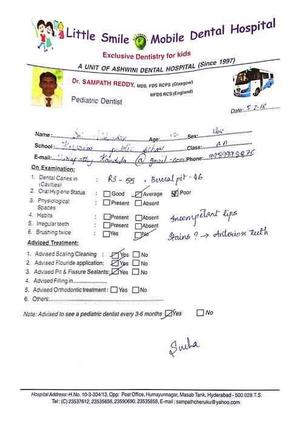 Little Smile Mobile Dental Hospital
Exclusive Dentistry for kids
A UNIT OF ASHWINI DENTAL HOSPITAL (Since 1997)
Dr. SAMPATH REDDY, MDS, FDS RCPS (Glasgow)
MFDS RCS (England)
Pediatric Dentist
Date:
Name: Age: Sex:
School: public school Class:
E-mail: @gmail.com Phone:
On Examination:
1. Dental Caries in (Cavities) : RS - 55 + Buccal pit - 46
2. Oral Hygiene Status : Good Average Poor
3. Physiological Spaces : Present Absent
4. Habits : Present Absent Incompetant lips
5. Irregular teeth : Present Absent
6. Brushing twice : Yes No Stains? → Anterior teeth
Advised Treatment:
1. Advised Scaling/Cleaning : Yes No
2. Advised Flouride application: Yes No
3. Advised Pit & Fissure Sealants: Yes No
4. Advised Filling in
5. Advised Orthodontic treatment : Yes No
6. Others:
Note: Advised to see a pediatric dentist every 3-6 months Yes No
Hospital Address: H.No. 10-3-304/13, Opp: Post Office, Humayunnagar, Masab Tank, Hyderabad - 500 028 T.S.
Tel: (C) 23537612, 23535658, 23590690, 23535858, E-mail : sampathcheruku@yahoo.com